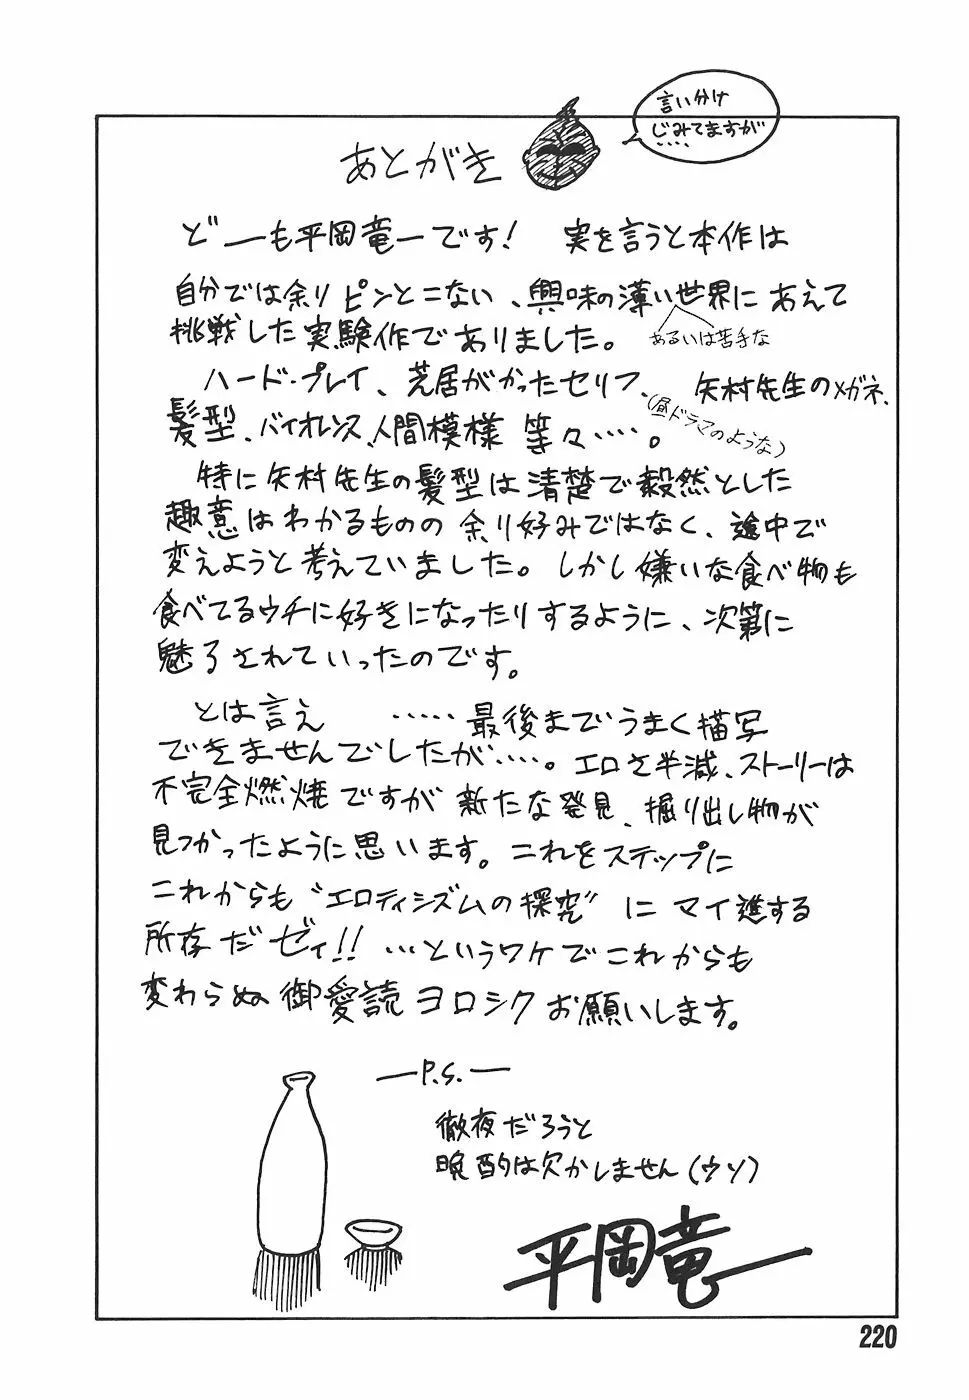 言い分け
じみてますが
‥‥
あとがき
どーも平岡竜一です! 実を言うと本作は
自分では余りピンとこない、興味の薄い世界にあえて
あるいは苦手な
挑戦した実験作でありました。
ハード・プレイ、芝居がかったセリフ、矢村先生のメガネ、
髪型、バイオレンス、人間模様 等々‥‥。
(昼ドラマのような)
特に矢村先生の髪型は清楚で毅然とした
趣意はわかるものの余り好みではなく、途中で
変えようと考えていました。しかし嫌いな食べ物も
食べてるウチに好きになったりするように、次第に
魅了されていったのです。
とは言え ‥‥‥最後までうまく描写
できませんでしたが‥‥。エロさ半減、ストーリーは
不完全燃焼ですが新たな発見、掘り出し物が
見つかったように思います。これをステップに
これからも“エロティシズムの探究”にマイ進する
所存だゼィ!! …というワケでこれからも
変わらぬ御愛読ヨロシクお願いします。
—P.S.—
徹夜だろうと
晩酌は欠かしません(ウソ)
平岡竜一
220